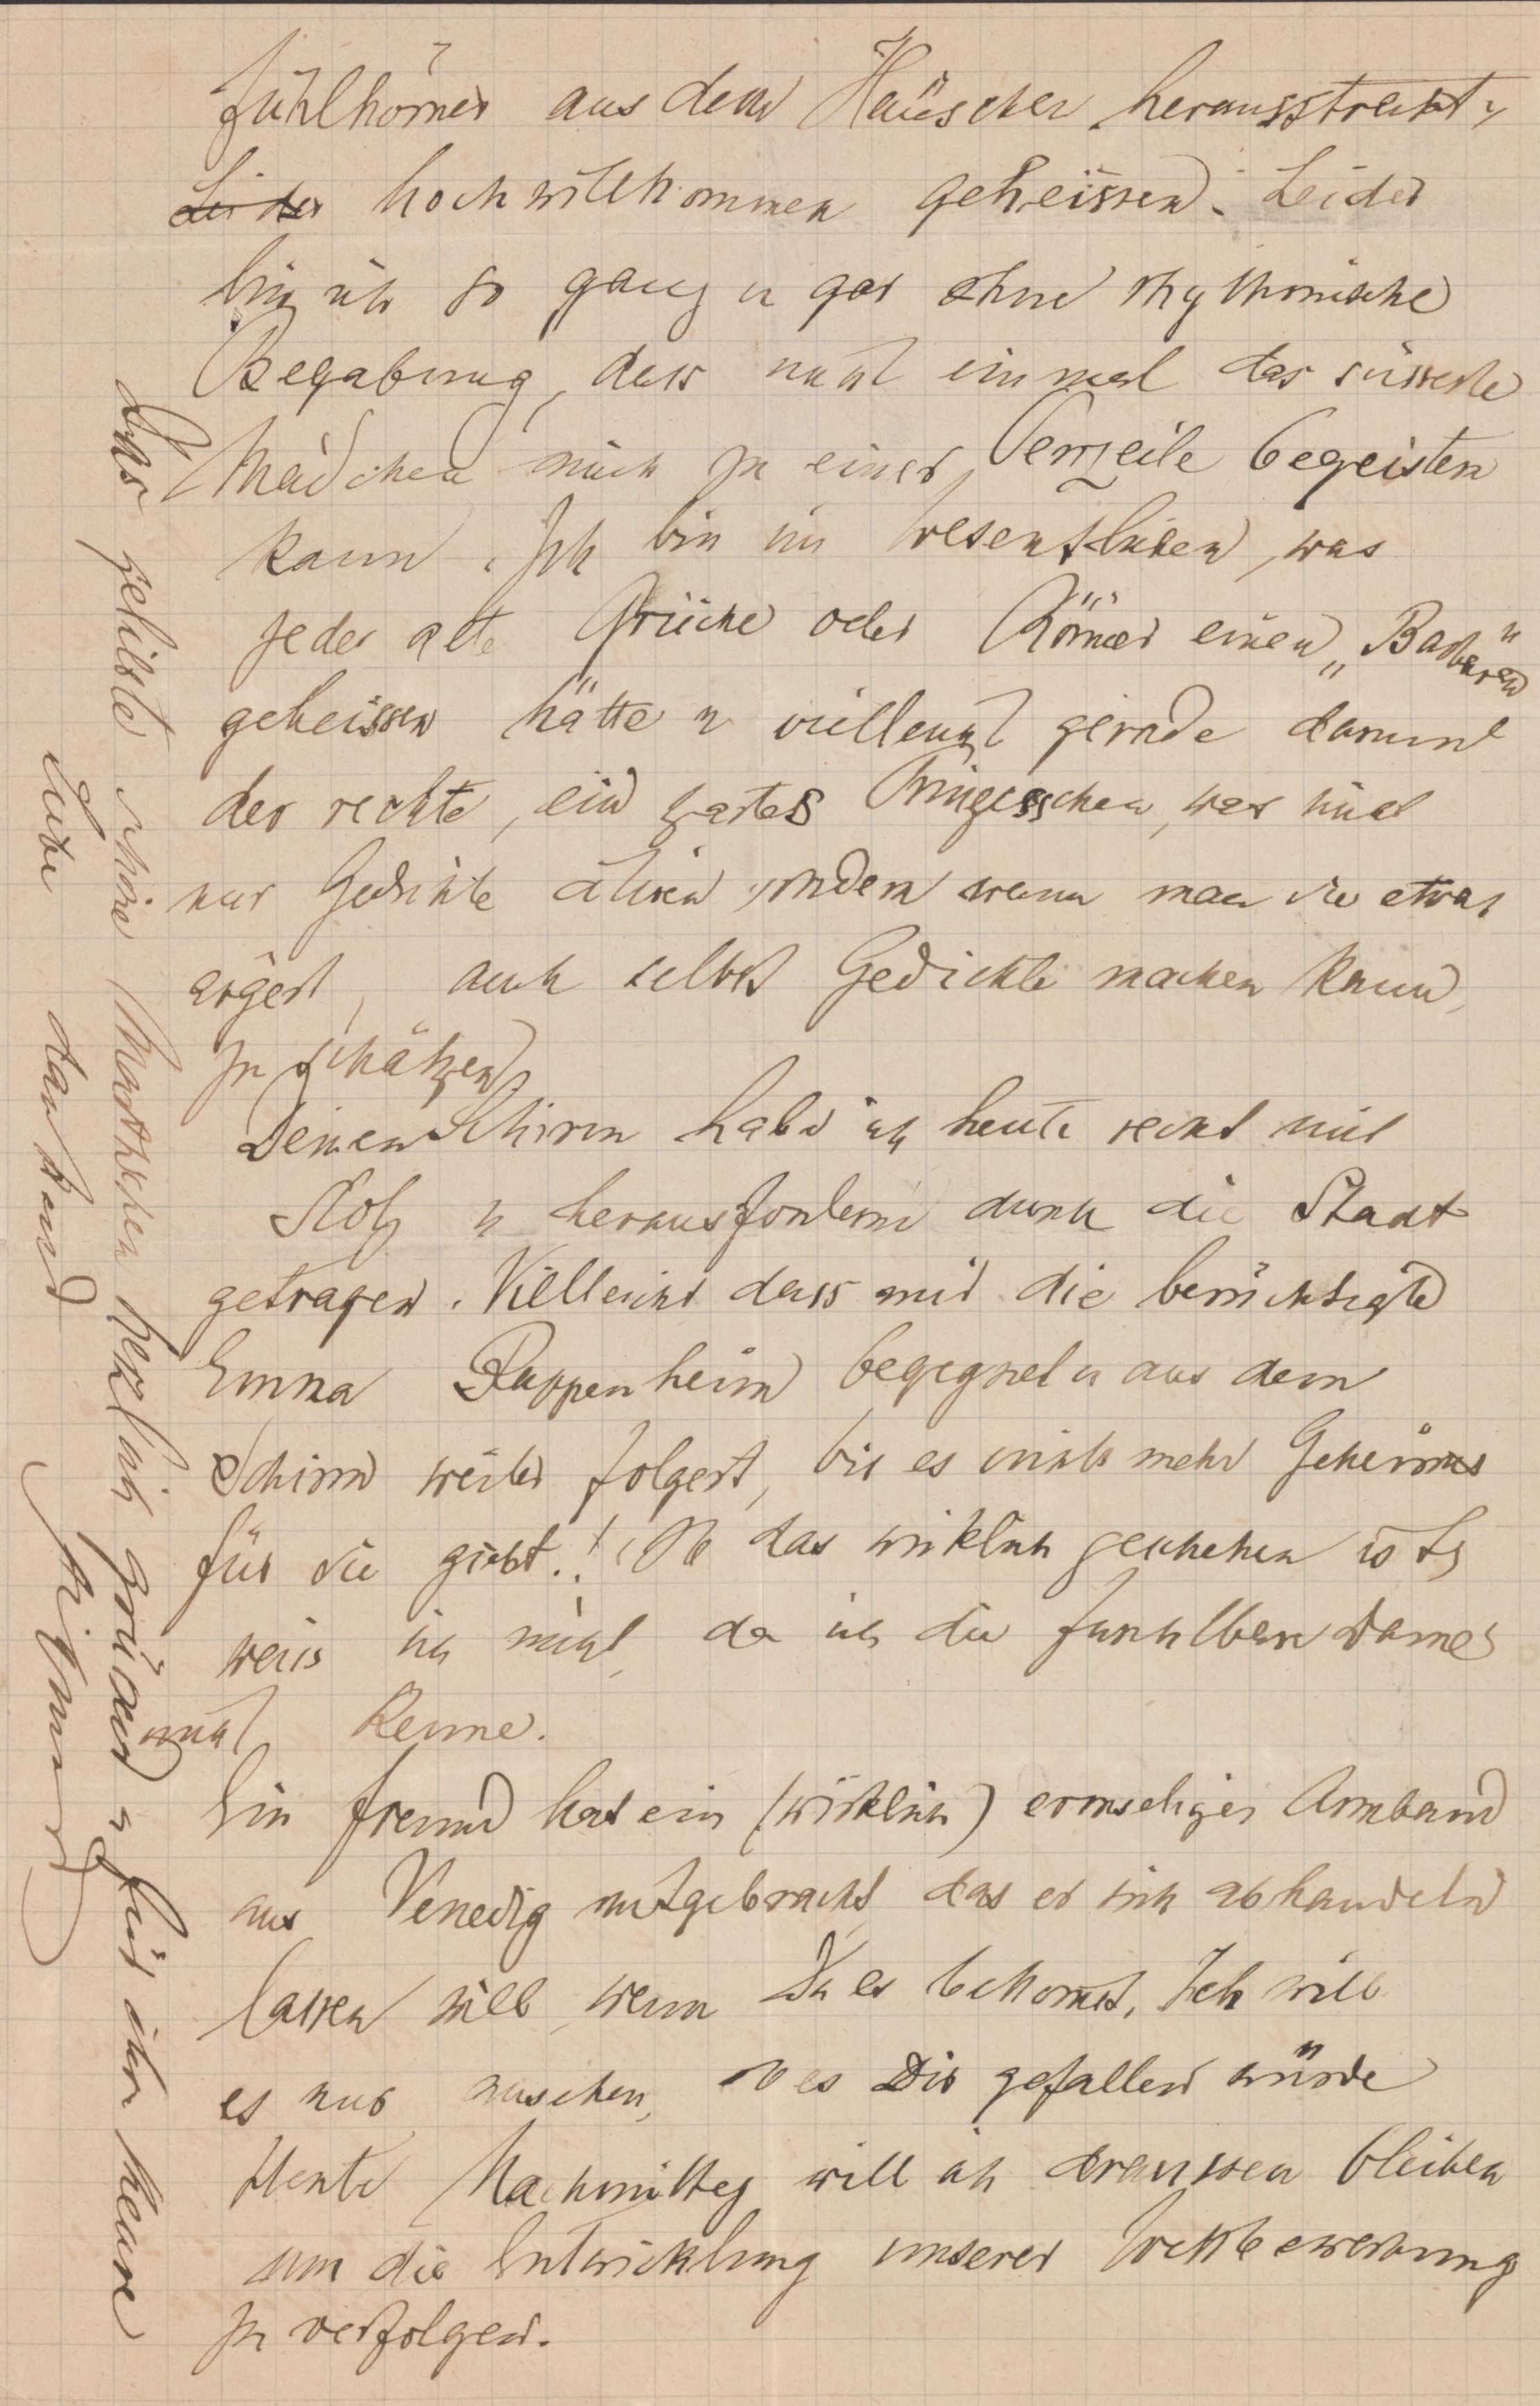 Fühlhörner aus dem Häuschen herausstreckt,
Leider hochwillkommen geheissen. Leider
bin ich so ganz u gar ohne rhythmische
Begabung, dass nicht einmal das süsseste
Mädchen mich zu einer Verszeile begeistern
kann. Ich bin im Wesentlichen, was
jeder alte Grieche oder Römer einen „Barbaren"
geheissen hätte u vielleicht gerade darum
der rechte, ein zartes Prinzesschen, das nicht
nur Gedichte sondern wenn man sie etwas
ärgert, auch selbst Gedichte machen kann,
zu schätzen.
Deinen Schirm habe ich heute recht mit
Stolz u herausfordernd durch die Stadt
getragen. Vielleicht dass mir die berüchtigte
Emma Pappenheim begegnet u aus dem
Schirm weiter folgert, bis es nichts mehr Geheimes
für sie giebt.! Ob das wirklich geschehen ist,
weiss ich nicht, da ich die furchtbare Dame
nicht kenne.
Ein Freund hat ein (wirklich) armseliges Armband
aus Venedig mitgebracht, das er sich abhandeln
lassen will, wenn Du es bekommst. Ich will
es nur ansehen, ob es Dir gefallen würde
Heute Nachmittag will ich draussen bleiben
um die Entwicklung unserer Wettbewerbung
zu verfolgen.
Das geliebte schöne Marthchen herzlich grüssend u für ihr kleine
Liebe dankend
Sigmund